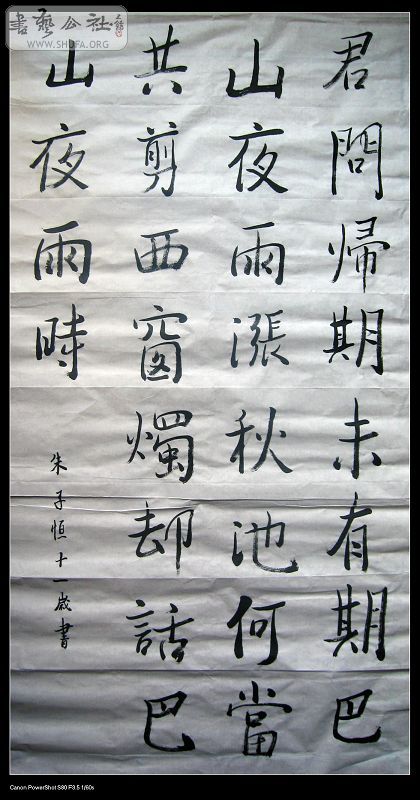 君問歸期未有期巴
山夜雨漲秋池何當
共剪西窗燭却話巴
山夜雨時
朱子恒十一歲書
書藝公社
WWW.SHUFA.ORG
Canon PowerShot S80 F3.5 1/60s